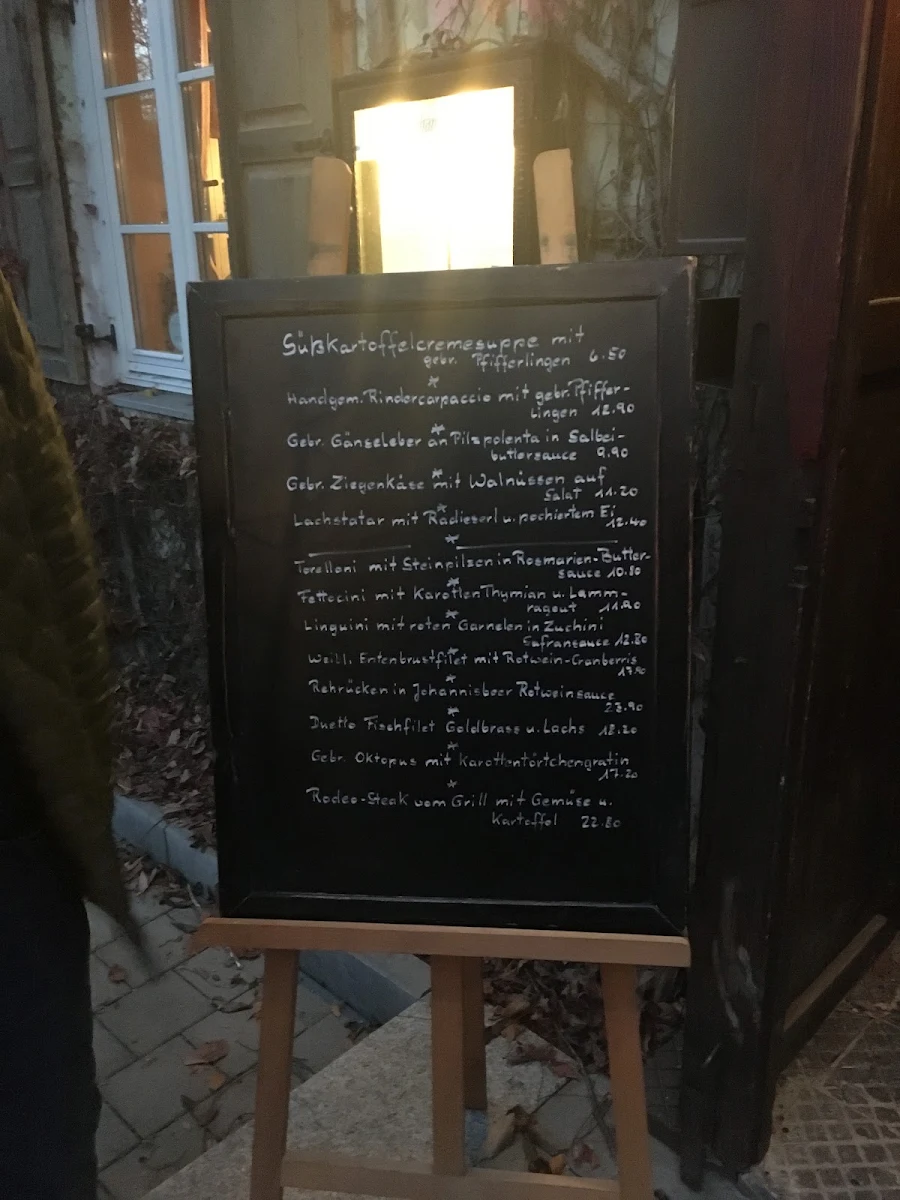 Süßkartoffelcremesuppe mit
gebr. Pfifferlingen 6.50
*
Handgem. Rindercarpaccio mit gebr. Pfiffer-
lingen 12.90
*
Gebr. Gänseleber an Pilzpolenta in Salbei-
buttersauce 9.90
*
Gebr. Ziegenkäse mit Walnüssen auf
Salat 11.20
*
Lachstatar mit Radieserl u. pochiertem Ei
12.40
*
Torelloni mit Steinpilzen in Rosmarien-Butter-
sauce 10.80
*
Fettocini mit Karotten Thymian u. Lamm-
ragout 11.90
*
Linguini mit roten Garnelen in Zuchini
Safransauce 12.80
*
Weibl. Entenbrustfilet mit Rotwein-Cranberris
17.90
*
Rehrücken in Johannisbeer Rotweinsauce
23.90
*
Duetto Fischfilet Goldbrass u. Lachs 18.20
*
Gebr. Oktopus mit Karottentörtchengratin
17.20
*
Rodeo-Steak vom Grill mit Gemüse u.
Kartoffel 22.80